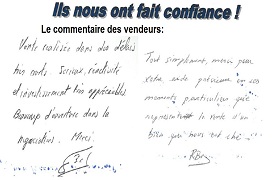 Ils nous ont fait confiance !
Le commentaire des vendeurs:
Vente réalisée dans des délais
très courts. Sérieux, réactivité
d'investissement très appréciables
Beaucoup d'ouverture dans la
négociation. Merci
Tout simplement, merci pour
votre aide précieuse en ces
moments particuliers que
représentent la vente d'un
bien qui nous est cher.